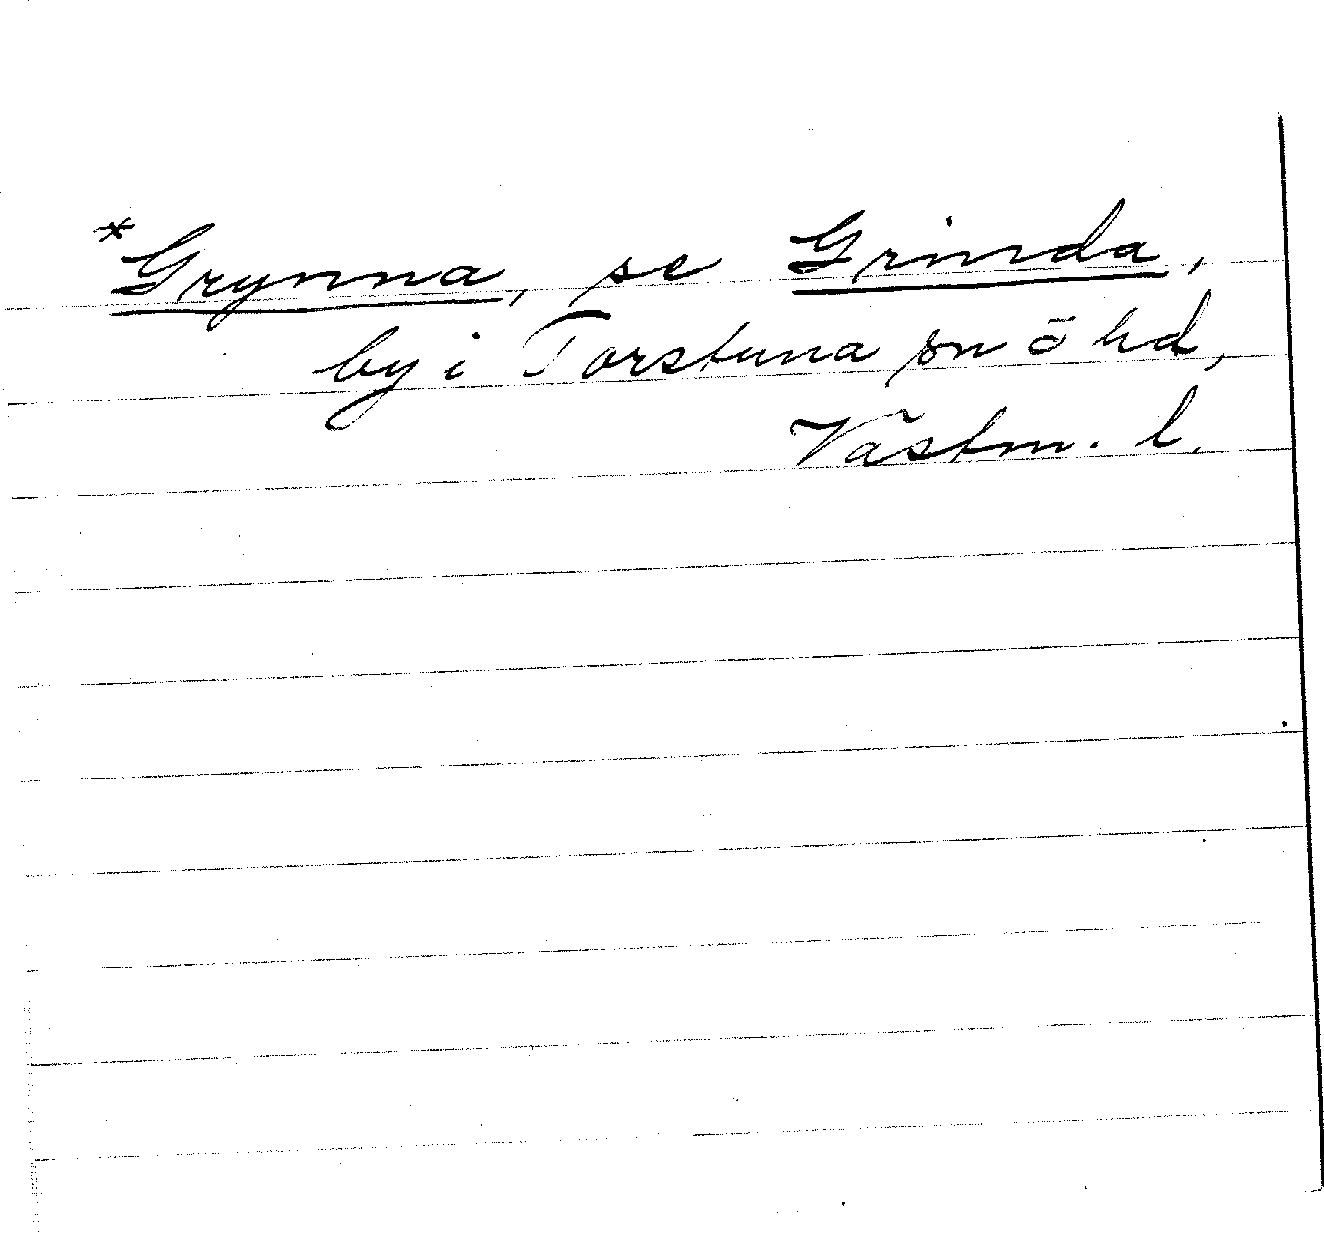 *Grynna, se Grinda,
by i Torstuna sn ō hd,
Västm. l.